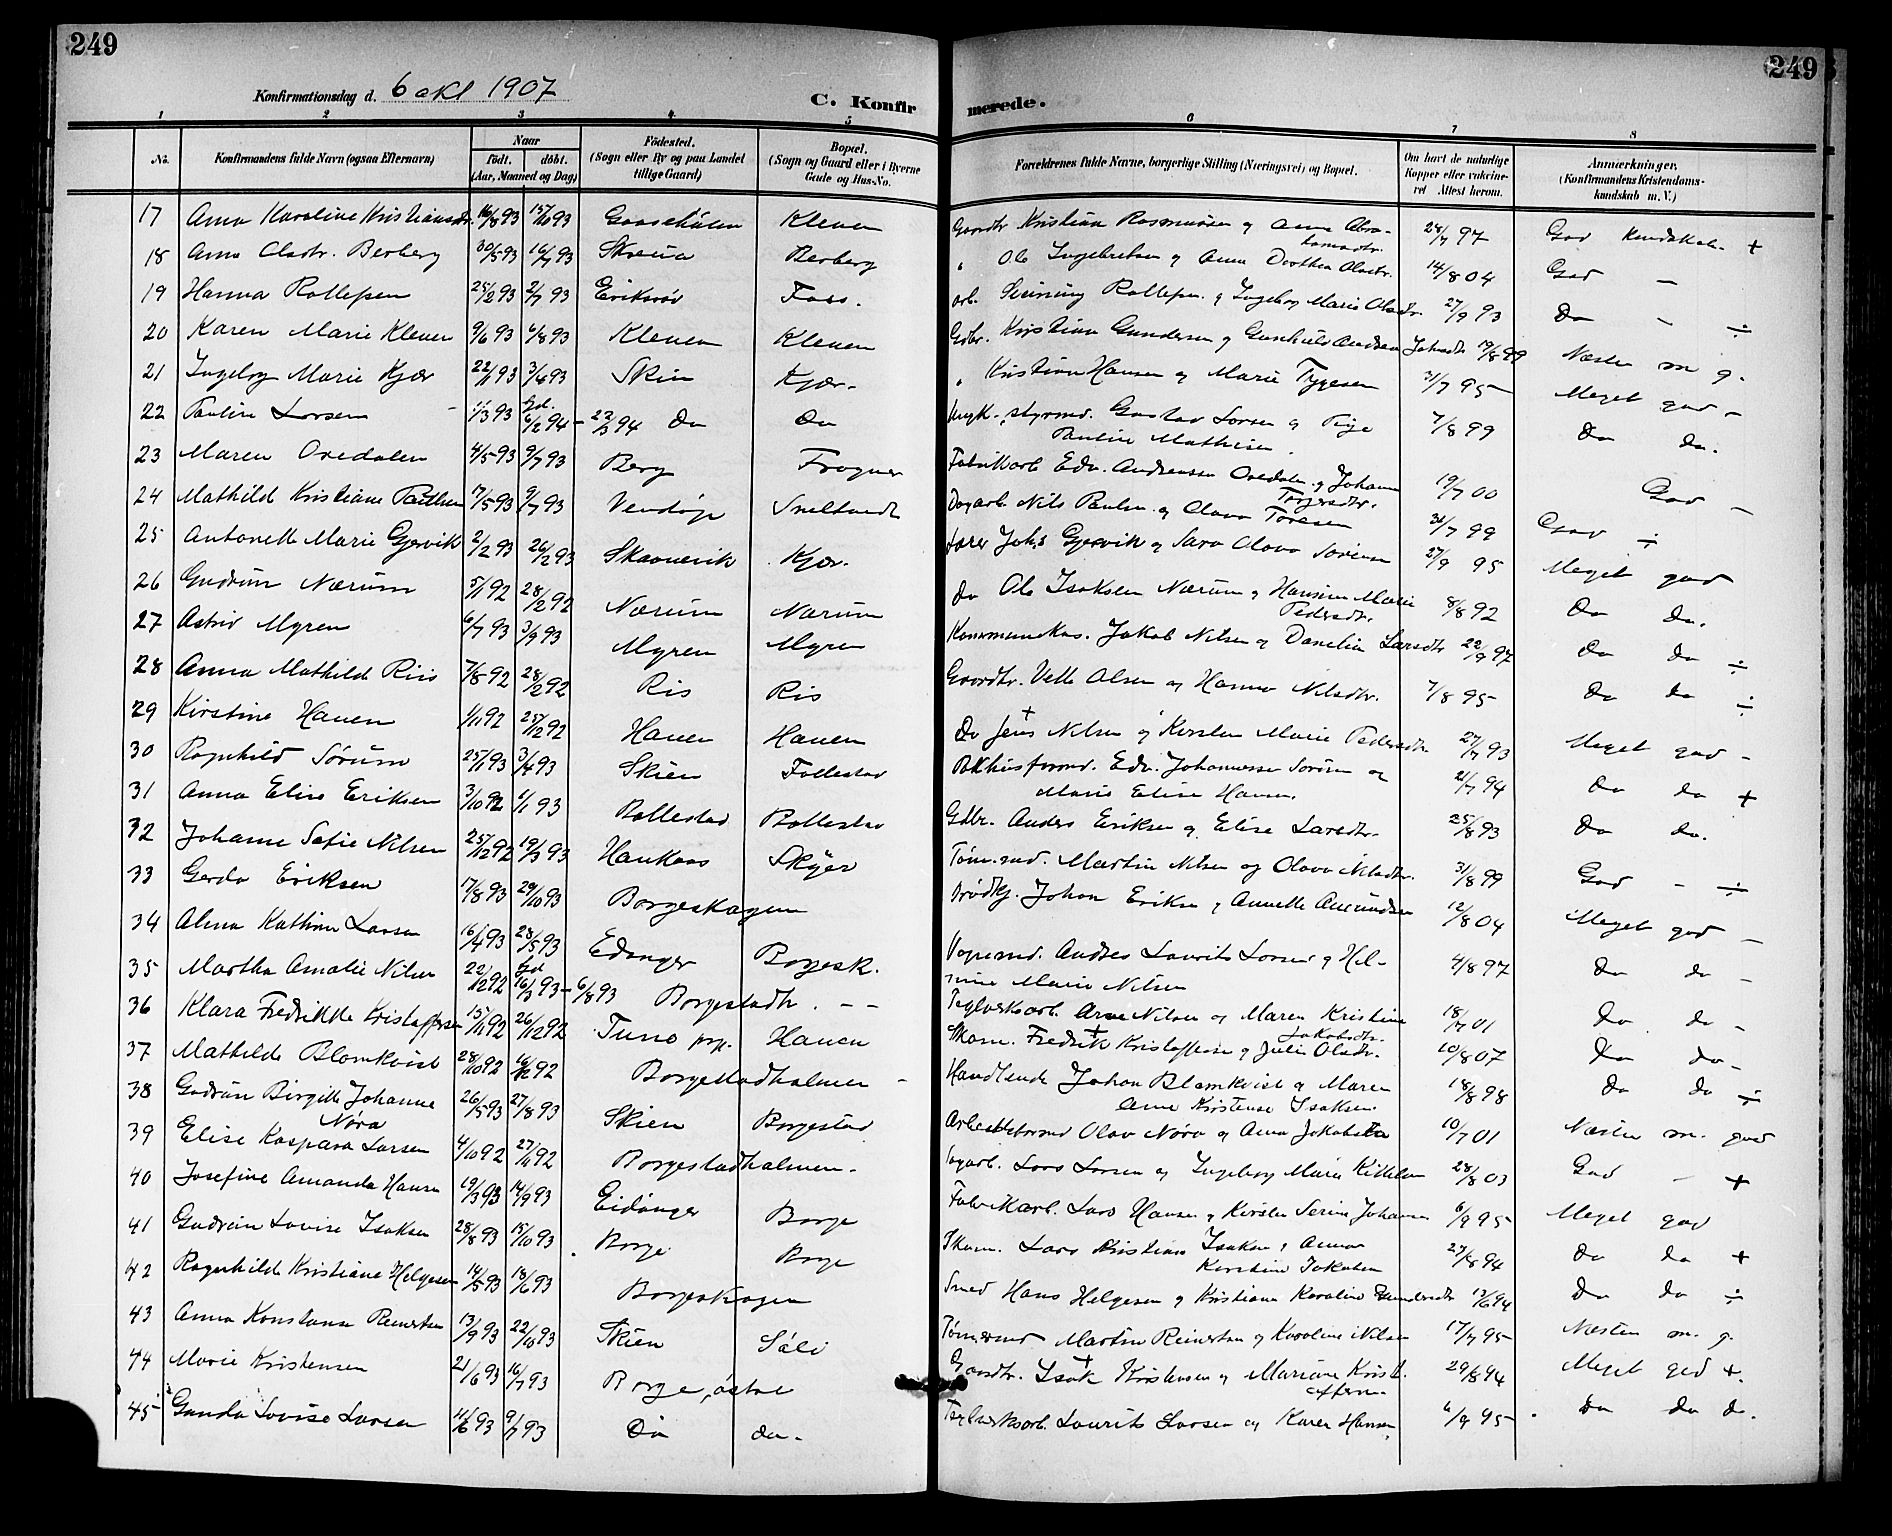 249
249
Konfirmationsdag d. 6 okt 1907
C. Konfirmerede.
1 2 3 4 5 6 7 8
No. Konfirmandens fulde Navn (ogsaa Efternavn) Naar födt. döbt. (Aar, Maaned og Dag) Födested. (Sogn eller By og paa Landet tillige Gaard) Bopæl. (Sogn og Gaard eller i Byerne Gade og Hus-No. Forældrenes fulde Navne, borgerlige Stilling (Næringsvei) og Bopæl. Om havt de naturlige Kopper eller vakcineret Attest herom. Anmærkninger. (Konfirmandens Kristendomskundskab m. V.)
17 Anna Karoline Kristiansdr. 16/8 93 15/10 93 Gaaseholen Kleven Gaardbr Kristian Rasmussen og Anne Abrahamsdtr. 28/7 97 God Kundskab +
18 Anna Olsdtr. Berberg 30/5 93 16/7 93 Berberg " Ole Ingebretsen og Anna Dorthea Olsdtr. 14/8 04 God —
19 Hanna Rollefsen 25/2 93 2/7 93 Eriksrød Foss. arb. Rollefsen og Ingeborg Marie Olsdtr. 27/9 93 Do - ÷
20 Karen Marie Kleven 9/6 93 6/8 93 Kleven Kleven Gdbr. Kristian Gundersen og Gunhild Andrea Johnsdtr 17/8 99 Næsten m g.
21 Ingeborg Marie Kjær 22/1 93 3/4 93 Skien Kjær. " Kristian Hansen og Marie Tygesen 31/7 95 Meget god -
22 Pauline Larsen 1/3 93 hjd. 6/2 94 - 22/3 94 Do Do styrmd. Gustav Larsen og Pige Pauline Mathisen. 7/8 99 Do do.
23 Maren Ovedalen 4/5 93 9/7 93 Berg Frogner Fabrikarb Edv. Andreassen Ovedalen og Johanne Torjersdtr. 19/7 00 God -
24 Mathild Kristiane Paulsen 17/5 93 9/7 93 Vendøp Sneltvedt Dagarb. Nils Paulsen og Olava Toresen 31/7 99 God ÷
25 Antonett Marie Gjervik 2/2 93 26/2 93 Skavnevik Kjær. Joh.s Gjervik og Sara Olava Sørensen 27/9 95 Meget god
26 Gudrun Nærum 5/1 92 28/2 92 Nærum Nærum Do Ole Isaksen Nærum og Hansine Marie Pedersdtr. 8/8 92 Do Do.
27 Astrid Myren 6/7 93 3/9 93 Myren Myren Kommunekas. Jakob Nilsen og Danelia Larsdtr 22/9 97 Do do ÷
28 Anna Mathild Riis 7/8 92 28/2 92 Ris Ris Gaardbr. Vetle Olsen og Hanna Nilsdtr. 7/8 95 Do do ÷
29 Kirstine Hauen 1/11 92 25/12 92 Hauen Hauen Do Jens + Nilsen og Kirsten Marie Pedersdtr 27/7 93 Meget god -
30 Ragnhild Sørum 25/1 93 3/4 93 Skien Follestad Pakhusformd. Edv. Johannesen Sørum og Marie Elise Hansen. 21/7 94 Do do +
31 Anna Elise Eriksen 3/10 92 1/1 93 Bollestad Bollestad Gdbr. Anders Eriksen og Elise Larsdtr. 25/8 93 Do do.
32 Johanne Sofie Nilsen 25/12 92 19/3 93 Haukaas Tøm.md. Martin Nilsen og Olava Nilsdtr. 31/8 99 God - ÷
33 Gerda Eriksen 17/8 93 29/10 93 Borgeskogen Johan Eriksen og Annette Amundsen 12/8 04 Meget god -
34 Alma Kathinn Larsen 16/4 93 28/5 93 Edanger Borgesk. Anders Laurits Larsen og Helmine Marie Nilsen 4/8 97 Do do -
35 Martha Amalie Nilsen 22/12 92 hjd 16/3 93 - 6/8 93 Borgestadh. - - Teglverksarb. Arne Nilsen og Maren Kristine Jakobsdtr. 18/7 01 Do do -
36 Klara Fredrikke Kristoffersen 15/11 92 26/12 92 Tune Hauen Skom. Fredrik + Kristoffersen og Julie Olsdtr. 10/8 07 Do do -
37 Mathilde Blomkvist 28/10 92 16/12 92 Borgestadholmen - Handlende Johan Blomkvist og Maren Anne Kirstense Isaksen. 18/8 98 Do do ÷
38 Gudrun Birgitte Johanne Nøra 26/5 93 27/8 93 Skien Borgestad Arbeidsformd Olav Nøra og Anna Jakobsen 10/7 01 Næsten m. god
39 Elise Kaspara Larsen 4/10 92 27/11 92 Borgestadholmen. Dagarb. Lars Larsen og Ingeborg Marie Kittelsen 28/8 03 God - +
40 Josefine Amanda Hansen 19/3 93 14/9 93 Eidanger Borge Fabrikarb. Lars Hansen og Kirsten Serine Johansen 6/9 95 Meget god
41 Gudrun Lovise Isaksen 28/8 93 15/10 93 Borge Borge Skom. Lars Kristian Isaksen og Anna Kirstine Jakobsen 27/8 94 Do do +
42 Ragnhild Kristiane Helgesen 14/5 93 18/6 93 Borgeskogen Smed Hans Helgesen og Kristiane Karoline Gundersdtr 13/6 94 Do do ÷
43 Anna Konstanse Reinertsen 13/9 93 22/10 93 Skien Sóli Tømmermd Martin Reinertsen og Karoline Nilsen 17/7 95 Næsten m. g.
44 Marie Kristensen 21/6 93 16/7 93 Borge, østre Gaardbr. Isak + Kristensen og Mariane Kristoffersen 29/8 94 Meget god +.
45 Gunda Lovise Larsen 11/6 93 9/7 93 Do do. Teglverksarb. Laurits Larsen og Karen Hansen, 6/9 95 Do do do.